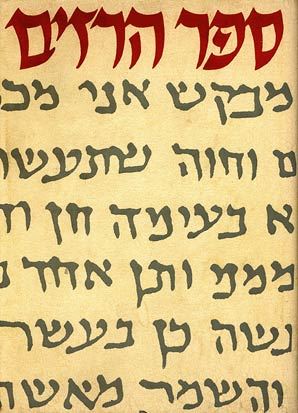 ספר הרזים
מבקש אני מכ
ם וחוה שתעשו
א בעימה חן וח
ממנו ותן אחד נ
נשה כן בעשר
והשמר מאשה